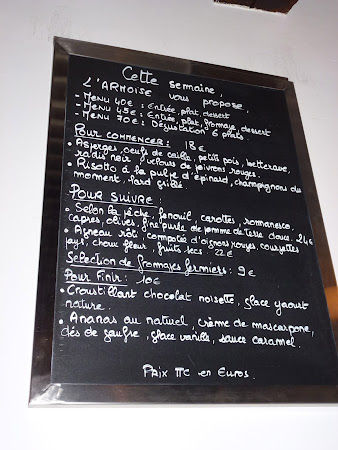 Cette semaine,
L'ARMOISE vous propose,
- MENU 40€ : Entrée, plat, dessert
- MENU 45€ : Entrée, plat, fromage, dessert
- MENU 70€ : Dégustation 6 plats.
POUR COMMENCER : 18€
• Asperges, oeufs de caille, petits pois, betterave,
radis noir, velours de poivrons rouges.
• Risotto à la pulpe d'épinard, champignons du
moment, lard grillé.
POUR SUIVRE :
• Selon la pêche, fenouil, carottes, romanesco,
capres, olives, fine purée de pomme de terre douce. 24€
• Agneau rôti, compotée d'oignons rouges, courgettes
pays, choux fleur, fruits secs. 22€
Selection de fromages fermiers : 9€
Pour Finir : 10€
• Croustillant chocolat noisette, glace yaourt
nature.
• Ananas au naturel, crème de mascarpone,
dés de gaufre, glace vanille, sauce caramel.
Prix TTC en Euros.